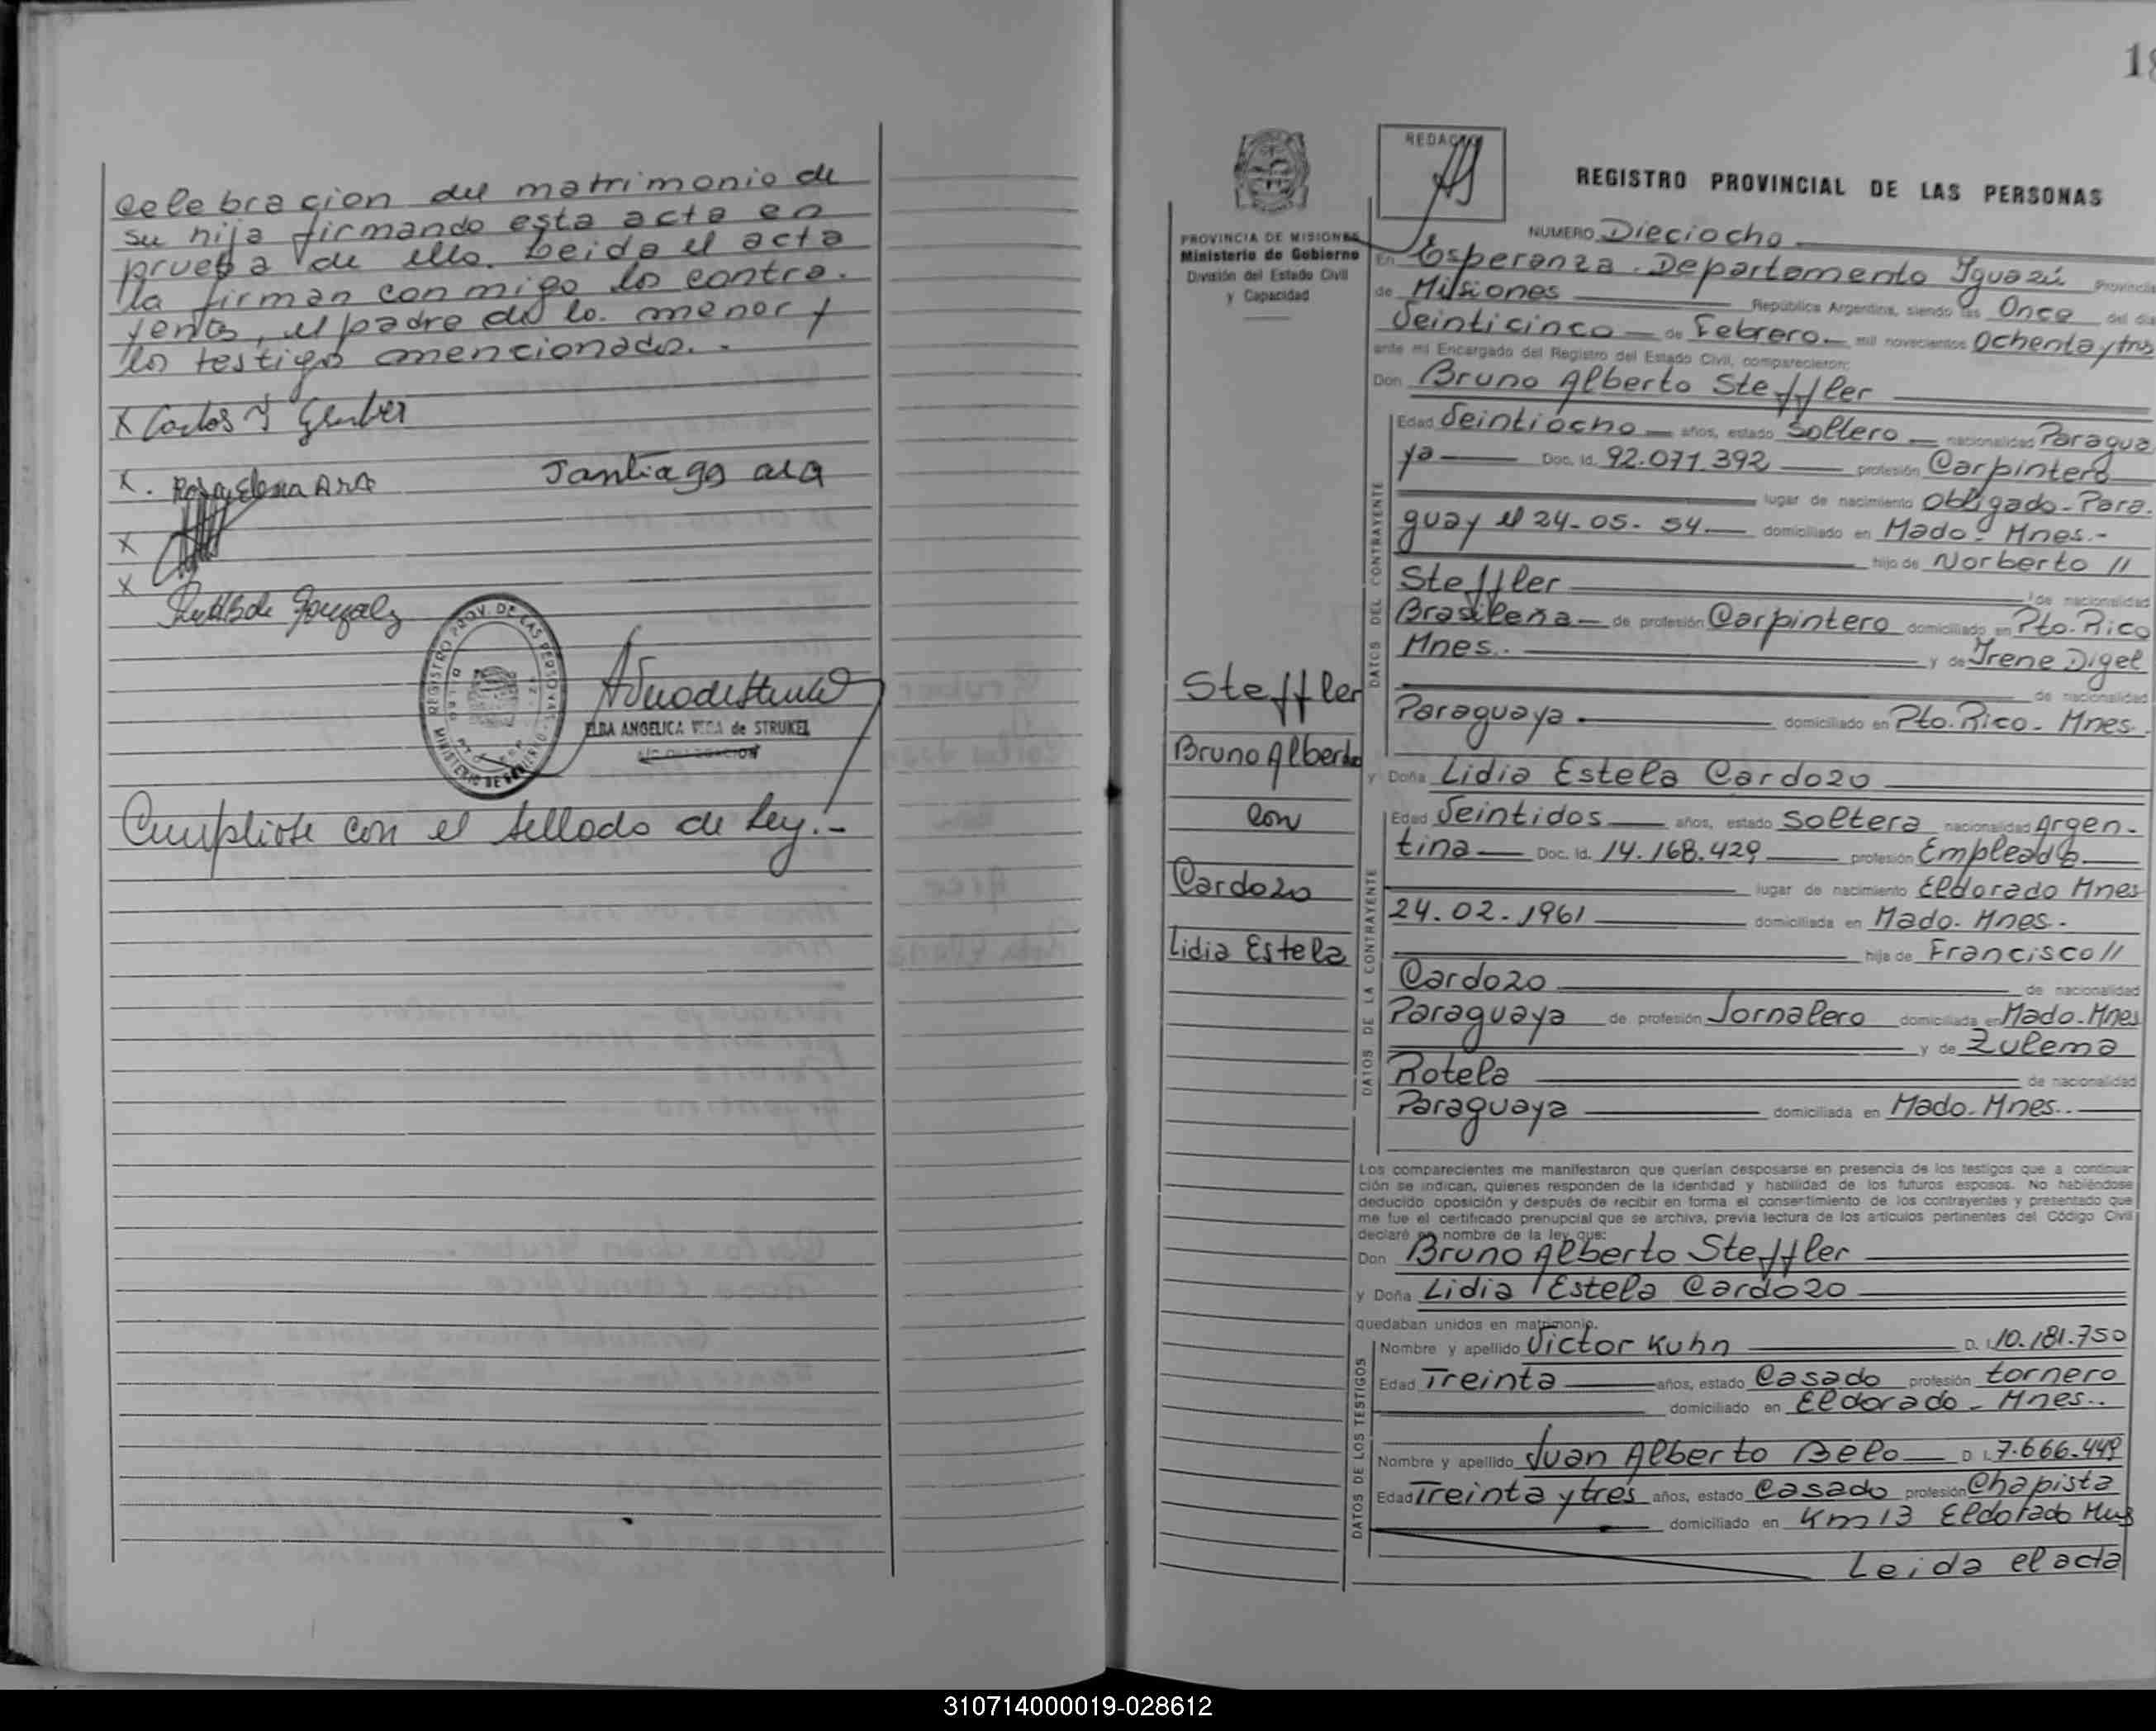 Celebracion del matrimonio de
su hija firmando esta acta en
prueba de ello. Leida el acta
la firman conmigo los contra-
yentes, el padre de la menor y
los testigos mencionados.-
X Carlos J Gruber
X. Rosa Elena Ara Santiago ara
X
X
de Gonzalez
REGISTRO PROV. DE LAS PERSONAS
MINISTERIO DE GOBIERNO
ELBA ANGELICA VEGA de STRUKEL
Cumpliose con el sellado de Ley.-
18
REDACTO
REGISTRO PROVINCIAL DE LAS PERSONAS
PROVINCIA DE MISIONES
Ministerio de Gobierno
División del Estado Civil
y Capacidad
Steffler
Bruno Alberto
con
Cardozo
Lidia Estela
NUMERO Dieciocho
En Esperanza. Departamento Iguazú Provincia
de Misiones República Argentina, siendo las Once del día
Veinticinco de Febrero mil novecientos Ochenta y tres
ante mí Encargado del Registro del Estado Civil, comparecieron:
Don Bruno Alberto Steffler
DATOS DEL CONTRAYENTE
Edad Veintiocho años, estado Soltero nacionalidad Paragua
ya Doc. Id. 92.071.392 profesión Carpintero
lugar de nacimiento Obligado-Para.
guay el 24-05-54 domiciliado en Mado-Mnes.-
hijo de Norberto //
Steffler de nacionalidad
Brasileña de profesión Carpintero domiciliado en Pto. Rico
Mnes. y de Irene Digel
de nacionalidad
Paraguaya domiciliado en Pto. Rico - Mnes.
y Doña Lidia Estela Cardozo
DATOS DE LA CONTRAYENTE
Edad Veintidos años, estado Soltera nacionalidad Argen-
tina Doc. Id. 14.168.429 profesión Empleada
lugar de nacimiento Eldorado Mnes
24.02.1961 domiciliada en Mado-Mnes.-
hija de Francisco //
Cardozo de nacionalidad
Paraguaya de profesión Jornalero domiciliada en Mado-Mnes
y de Zulema
Rotela de nacionalidad
Paraguaya domiciliada en Mado-Mnes..
Los comparecientes me manifestaron que querían desposarse en presencia de los testigos que a continua-
ción se indican, quienes responden de la identidad y habilidad de los futuros esposos. No habiéndose
deducido oposición y después de recibir en forma el consentimiento de los contrayentes y presentado que
me fue el certificado prenupcial que se archiva, previa lectura de los artículos pertinentes del Código Civil
declaré en nombre de la ley que:
Don Bruno Alberto Steffler
y Doña Lidia Estela Cardozo
quedaban unidos en matrimonio.
DATOS DE LOS TESTIGOS
Nombre y apellido Victor Kuhn D. I. 10.181.750
Edad Treinta años, estado Casado profesión tornero
domiciliado en Eldorado - Mnes..
Nombre y apellido Juan Alberto Belo D. I. 7.666.449
Edad Treinta y tres años, estado Casado profesión Chapista
domiciliado en Km 13 Eldorado Mns
Leida el acta
310714000019-028612